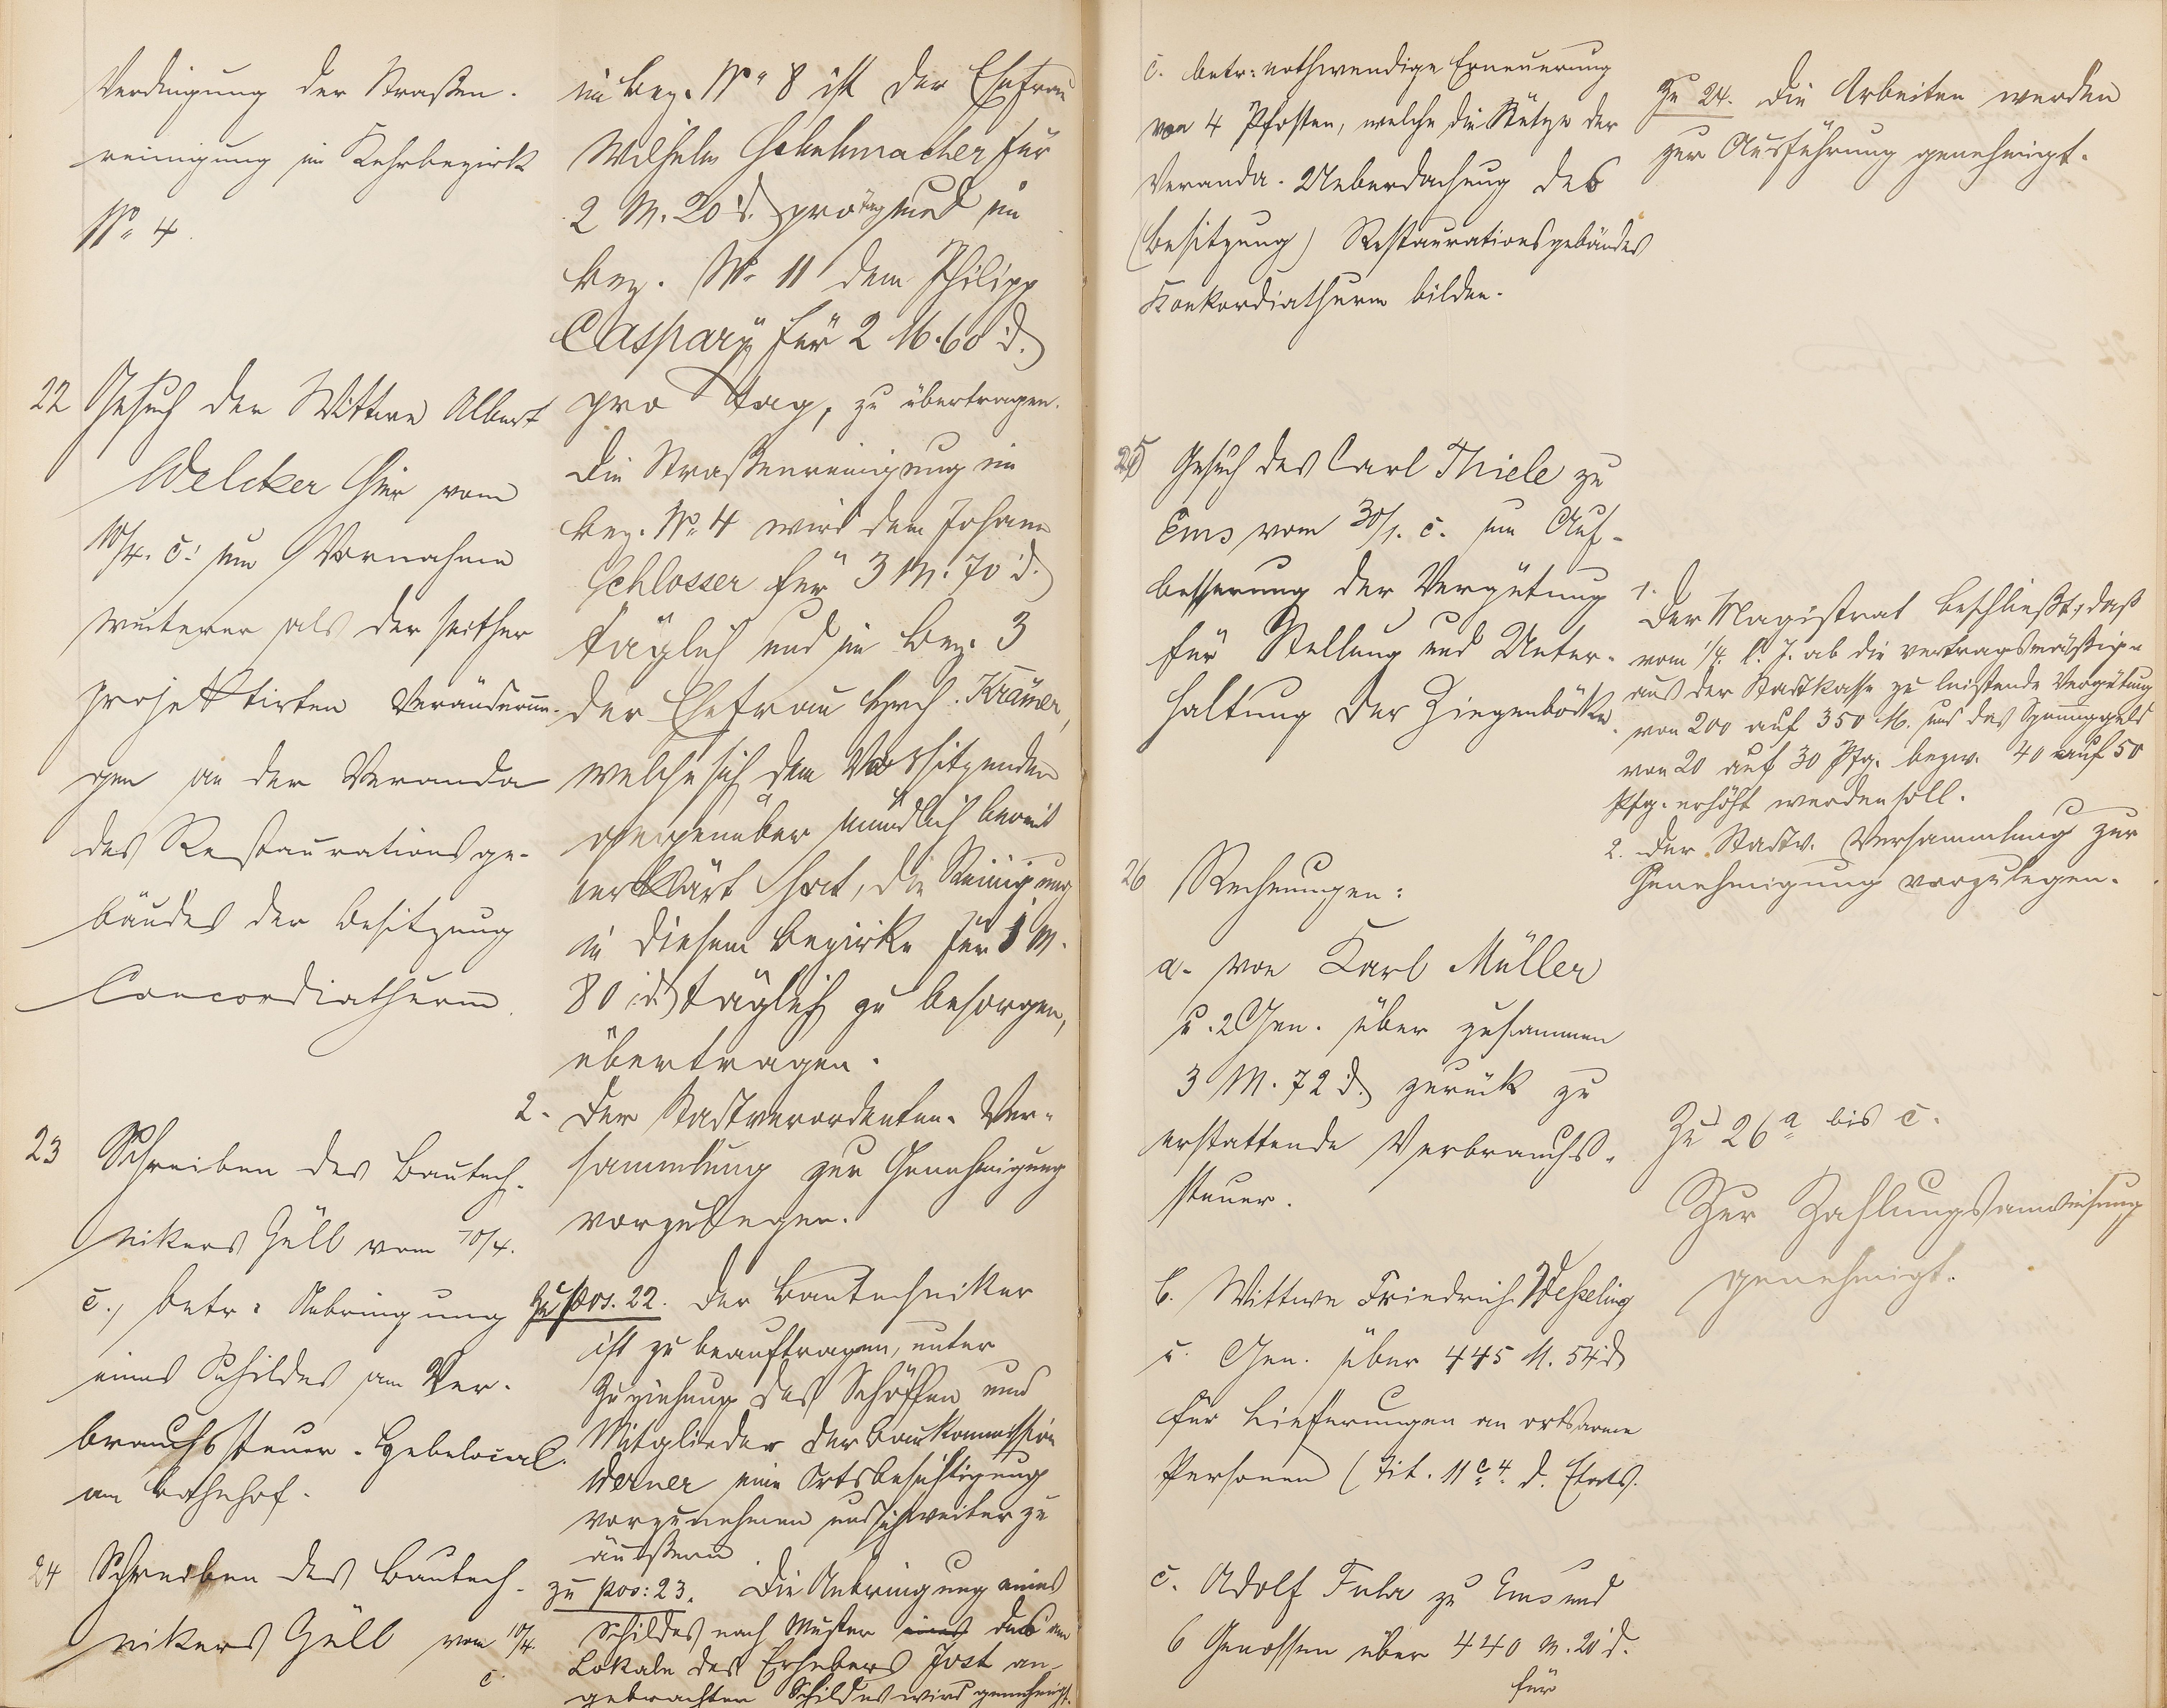 Verdingung der Straßen-
reinigung im Kehrbezirk
No 4.
22 Gesuch der Wittwe Albert
Welcker hier vom
10/4. c. um Vornahme
weiterer als der seither
projektirten Veränderun-
gen an der Veranda
des Restaurationsge-
bäudes der Besitzung
Concordiathurm.
23 Schreiben des Bautech-
nikers Güll vom 10/4.
c., betr. Anbringung
eines Schildes am Ver-
brauchssteuer-Hebelocal
am Bahnhof.
24 Schreiben des Bautech-
nikers Güll vom 10/4.
c.
im Bez. No 8 ist der Ehefrau
Wilhelm Schuhmacher für
2 M. 20 d. pro Tag und im
Bez. No 11 dem Philipp
Caspary für 2 M. 60 d.
pro Tag, zu übertragen.
Die Straßenreinigung im
Bez. No 4 wird dem Johann
Schlosser für 3 M. 70 d.
täglich und im Bez. 3
der Ehefrau Hrch. Krämer,
welche sich dem Vorsitzenden
gegenüber mündlich bereit
erklärt hat, die Reinigung
in diesem Bezirke für 1 M.
80 d. täglich zu besorgen,
übertragen.
2. Der Stadtverordneten-Ver-
sammlung zur Genehmigung
vorzulegen.
Zu pos. 22. Der Bautechniker
ist zu beauftragen, unter
Zuziehung des Schöffen und
Mitglieder der Baukommission
Werner eine Ortsbesichtigung
vorzunehmen und sich weiter zu
äußern
zu pos: 23. Die Anbringung eines
Schildes nach Muster eines des am
Lokale des Erhebers Jost an-
gebrachten Schildes wird genehmigt.
c. betr: nothwendige Erneuerung
von 4 Pfosten, welche die Stütze der
Veranda-Ueberdachung des
(Besitzung) Restaurationsgebäudes
Konkordiathurm bilden.
Zu 24. Die Arbeiten werden
zur Ausführung genehmigt.
25 Gesuch des Carl Thiele zu
Ems vom 30/1. c. um Auf-
besserung der Vergütung
für Stellung und Unter-
haltung der Ziegenböcke.
1. Der Magistrat beschließt, daß
vom 1/4. l. J. ab die vertragsmäßige
aus der Stadtkasse zu leistende Vergütung
von 200 auf 350 M. und das Sprunggeld
von 20 auf 30 Pfg. bezw. 40 auf 50
Pfg. erhöht werden soll.
2. Der Stadtv. Versammlung zur
Genehmigung vorzulegen.
26 Rechnungen:
a. von Karl Müller
u. 2 Gen. über zusammen
3 M. 72 d. zurück zu
erstattende Verbrauchs-
steuer.
Zu 26 a bis c.
Zur Zahlungsanweisung
genehmigt.
b. Wittwe Friedrich Weßeling
u. Gen. über 445 M. 54 d
für Lieferungen an ortsarme
Personen (Tit. 11 c 4. d. Etats.
c. Adolf Fuhr zu Ems und
6 Genossen über 440 M. 20 d.
für